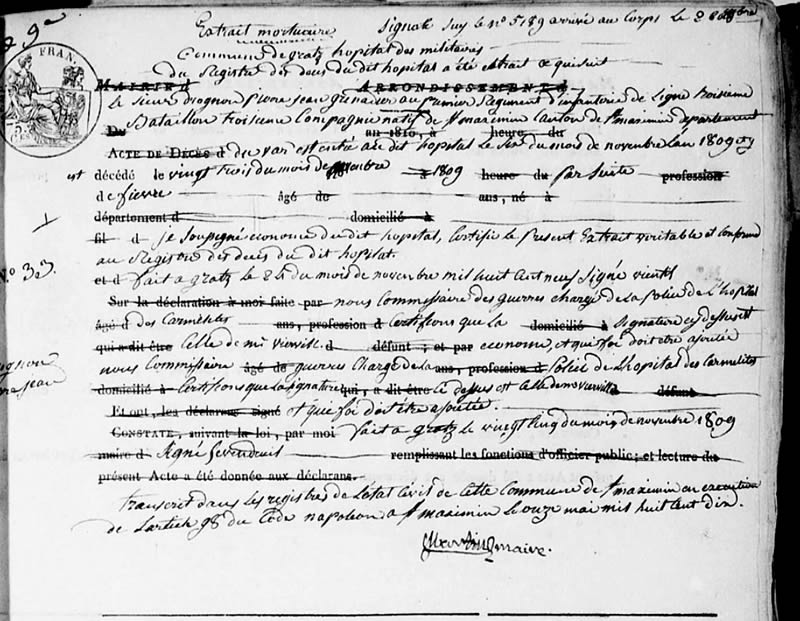 Extrait mortuaire Signalé sur le n° 5189 arrivé au Corps le 2
Commune de gratz hopital des militaires
Du Registre des deces du dit hopital a été extrait ce qui suit
MAIRIE d ARRONDISSEMENT d
FRAN.
Le Sieur drognon Pierre jean Grenadier au premier Regiment d'infanterie de Ligne troisieme
Du Bataillon troisieme Compagnie natif de St maximin Canton de St maximin departement
an 1810, à heure, du
ACTE DE DÉCÈS d du var est entré au dit hopital le du mois de novembre l'an 1809 et y
est décédé le vingt trois du mois de novembre 1809 heure du par Suite profession
de fievre âgé de ans, né à
département d domicilié à
fil d je Soussigné econome du dit hopital, Certifie le present Extrait veritable et conforme
au Registre des deces du dit hopital.
N.° 33.
et d fait a gratz le 24 du mois de novembre mil huit Cent neuf Signé
Sur la déclaration à moi faite par nous Commissaire des guerres chargé de la police de l'hopital
âgé d des Carmelites ans, profession d Certifions que la domicilié à Signature cy dessus est
qui a dit être Celle de mr d défunt; et par econome, et que foi doit être ajoutée
nous Commissaire âgé de guerres Chargé de la ans, profession d Police de L'hopital des Carmelites
jean
domicilié à Certifions que la Signature qui, a dit être Ci dessus est Celle de mr défunt
Et ont, les déclarans signé et que foi doit être ajoutée.
CONSTATÉ, suivant la loi, par moi fait a gratz le vingt du mois de novembre 1809
maire d Signé remplissant les fonctions d'officier public; et lecture du
présent Acte a été donnée aux déclarans.
transcrit dans les registres de L'état Civil de Cette Commune de St maximin en execution
de L'article 98 du Code napoleon a St maximin Le onze mai mil huit Cent dix.
maire.